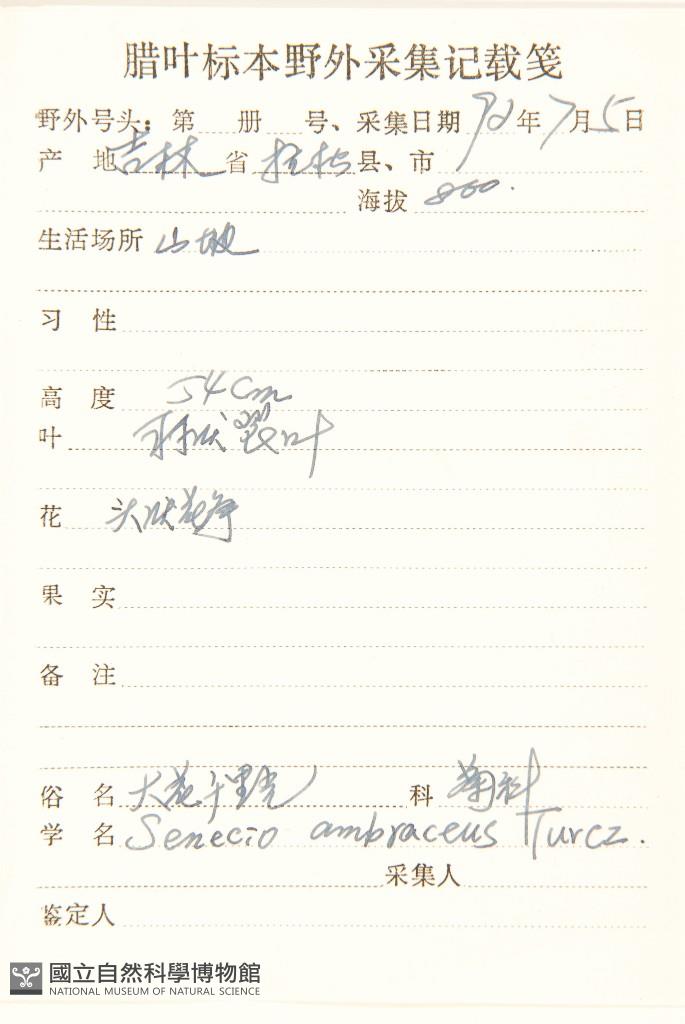 腊叶标本野外采集记载笺
野外号头：第 册 号、采集日期 92年7月5日
产 地 吉林 省 县、市
海拔 800.
生活场所 山坡
习 性
高 度 54cm
叶 羽状裂叶
花 头状花序
果 实
备 注
俗 名 大花千里光 科 菊科
学 名 Senecio ambraceus Turcz.
采集人
鉴定人
國立自然科學博物館
NATIONAL MUSEUM OF NATURAL SCIENCE